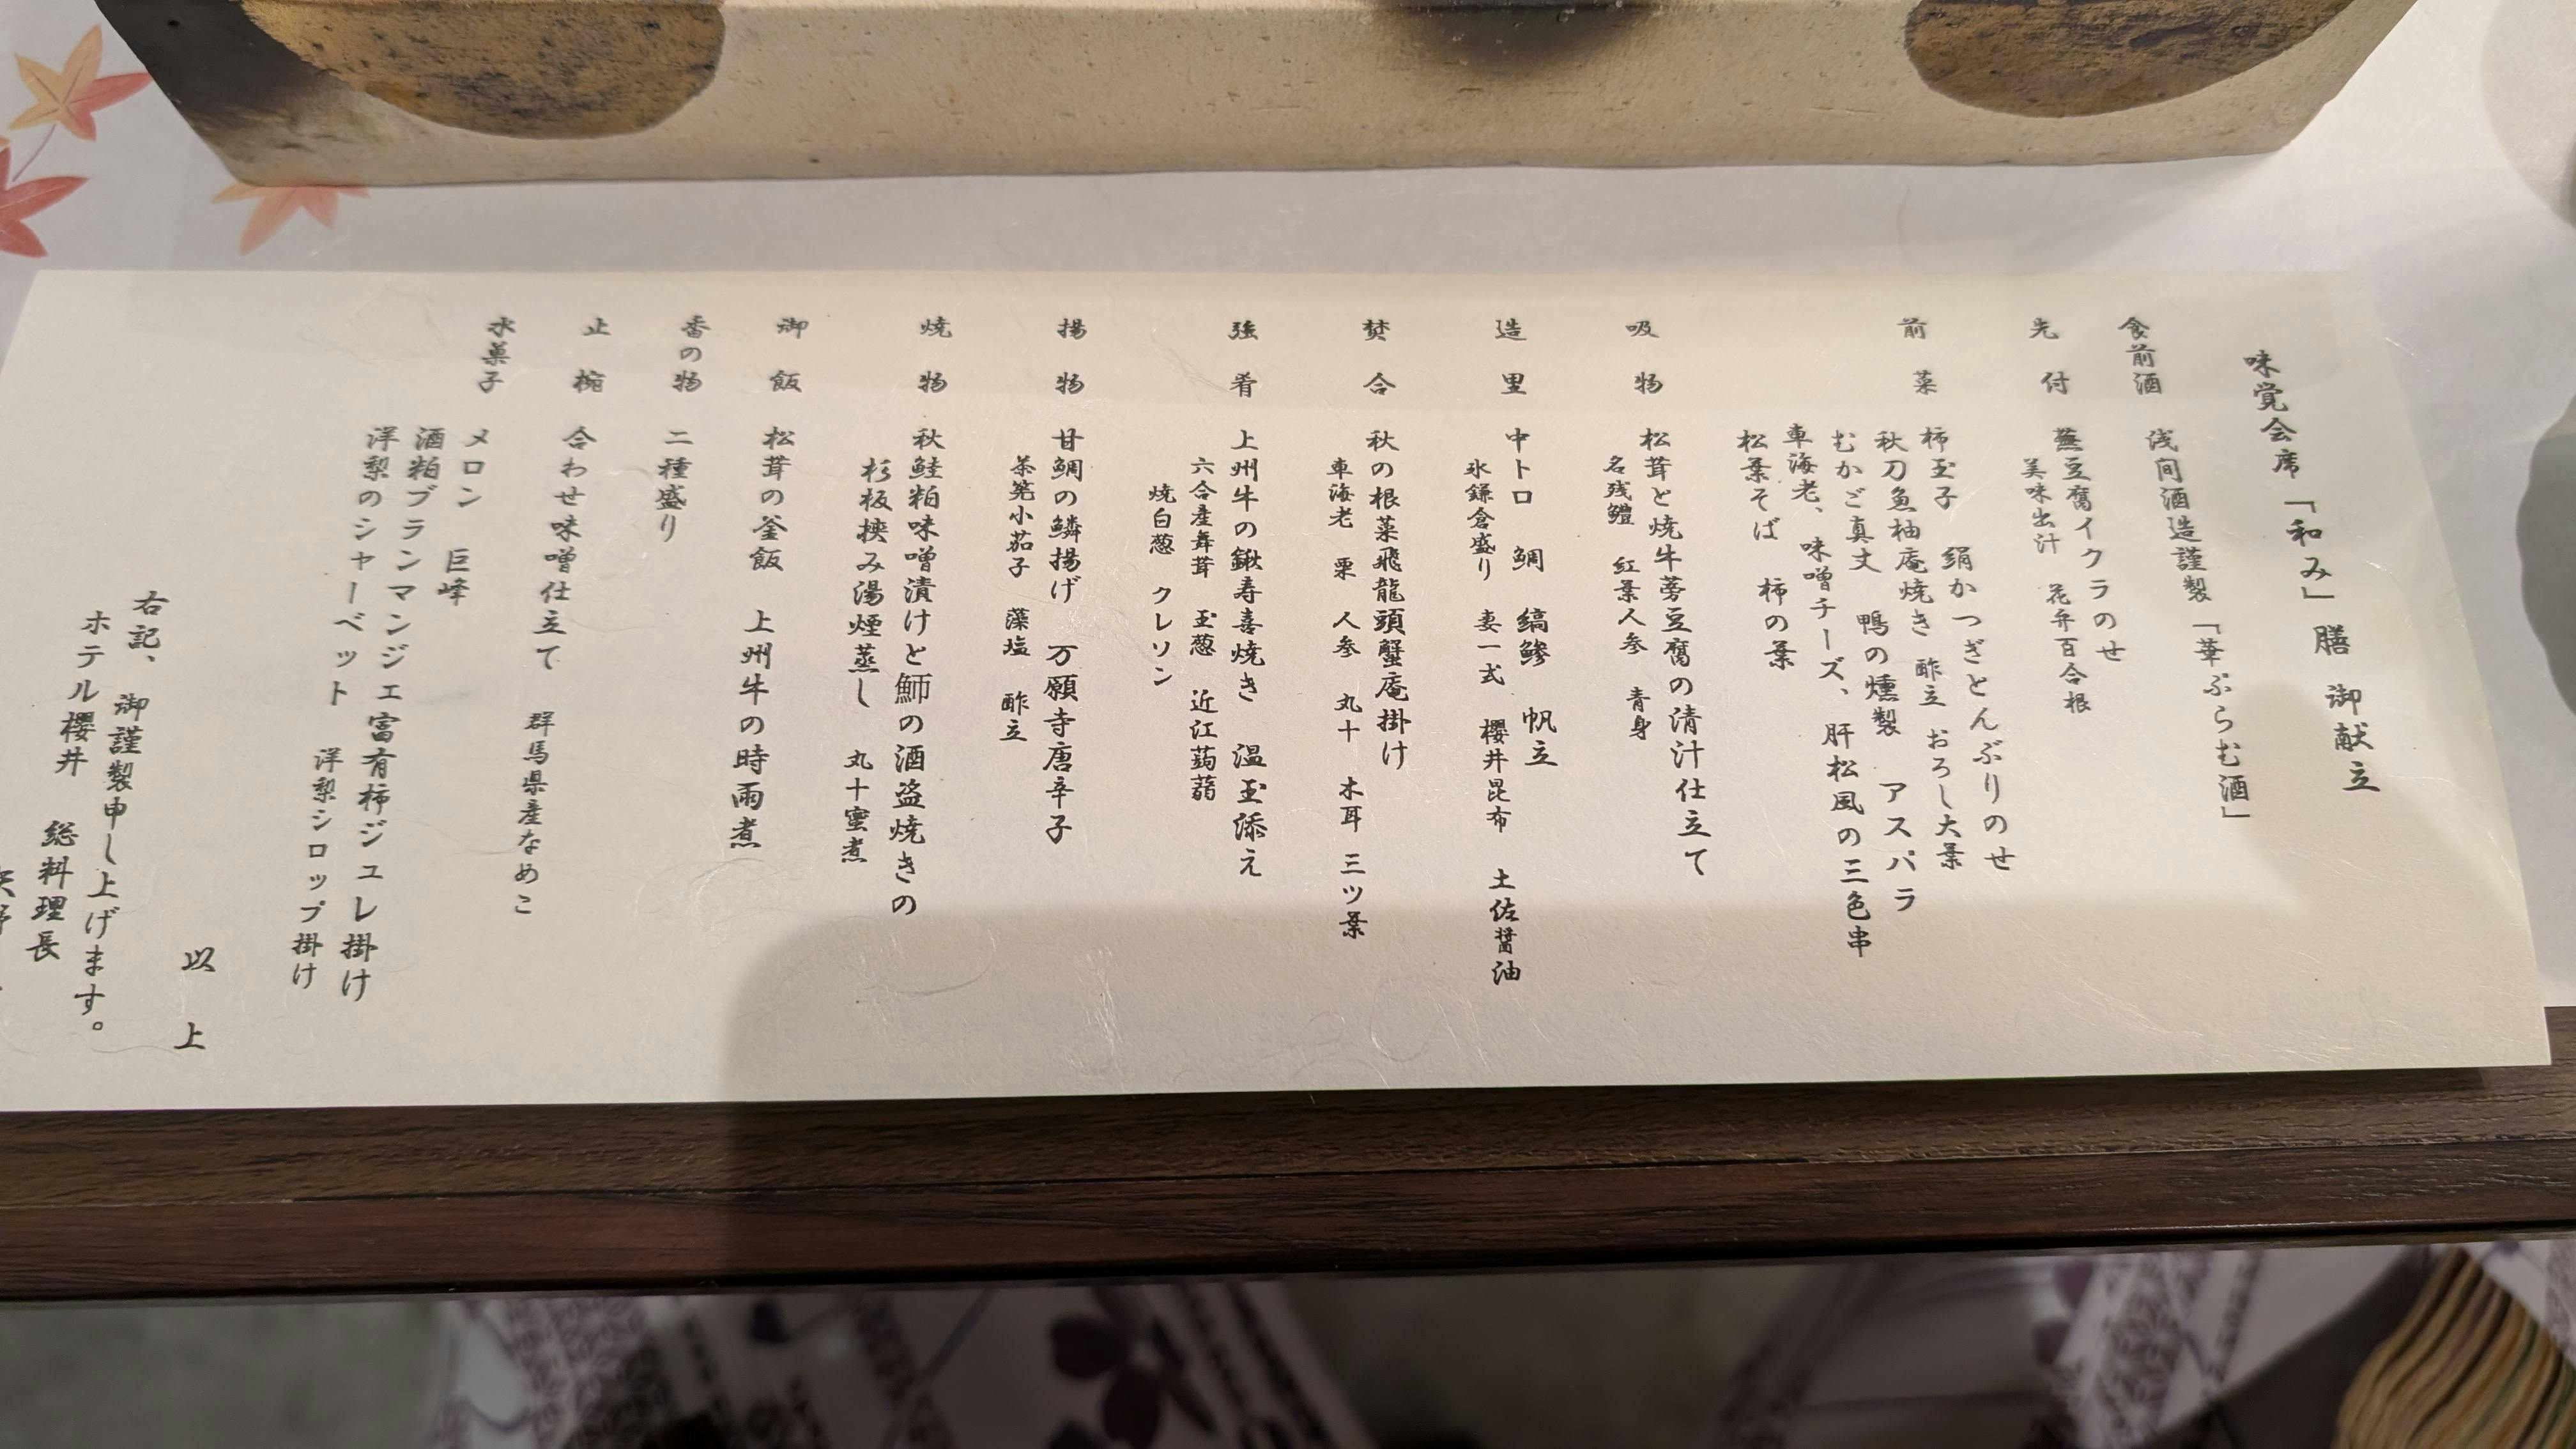 味覚会席「和み」膳 御献立
食前酒 浅間酒造謹製「華ぷらむ酒」
先付 蕪豆腐イクラのせ
美味出汁 花弁百合根
前菜 柿玉子 絹かつぎとんぶりのせ
秋刀魚柚庵焼き 酢立 おろし大葉
むかご真丈 鴨の燻製 アスパラ
車海老、味噌チーズ、肝松風の三色串
松葉そば 柿の葉
吸物 松茸と焼牛蒡豆腐の清汁仕立て
名残鱧 紅葉人参 青身
造里 中トロ 鯛 縞鯵 帆立
氷鎌倉盛り 妻一式 櫻井昆布 土佐醤油
焚合 秋の根菜飛龍頭蟹庵掛け
車海老 栗 人参 丸十 木耳 三ツ葉
強肴 上州牛の鍬寿喜焼き 温玉添え
六合産舞茸 玉葱 近江蒟蒻
焼白葱 クレソン
揚物 甘鯛の鱗揚げ 万願寺唐辛子
茶筅小茄子 藻塩 酢立
焼物 秋鮭粕味噌漬けと鰤の酒盗焼きの
杉板挟み湯煙蒸し 丸十蜜煮
御飯 松茸の釜飯 上州牛の時雨煮
香の物 二種盛り
止椀 合わせ味噌仕立て 群馬県産なめこ
水菓子 メロン 巨峰
酒粕ブランマンジェ富有柿ジュレ掛け
洋梨のシャーベット 洋梨シロップ掛け
以上
右記、御謹製申し上げます。
ホテル櫻井 総料理長